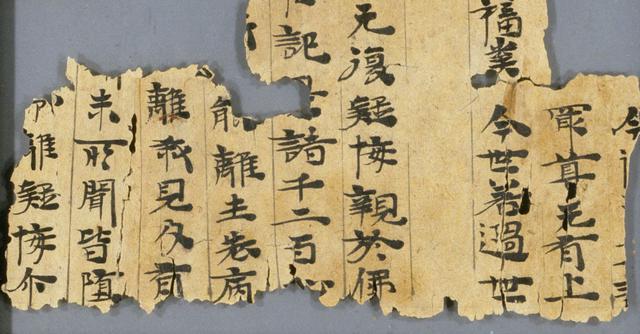 尊无有上
福業 今世若過世
无復疑悔親於佛
記是諸千二百心
能離生老病
離我見及有
未所聞皆墮
離疑悔尒